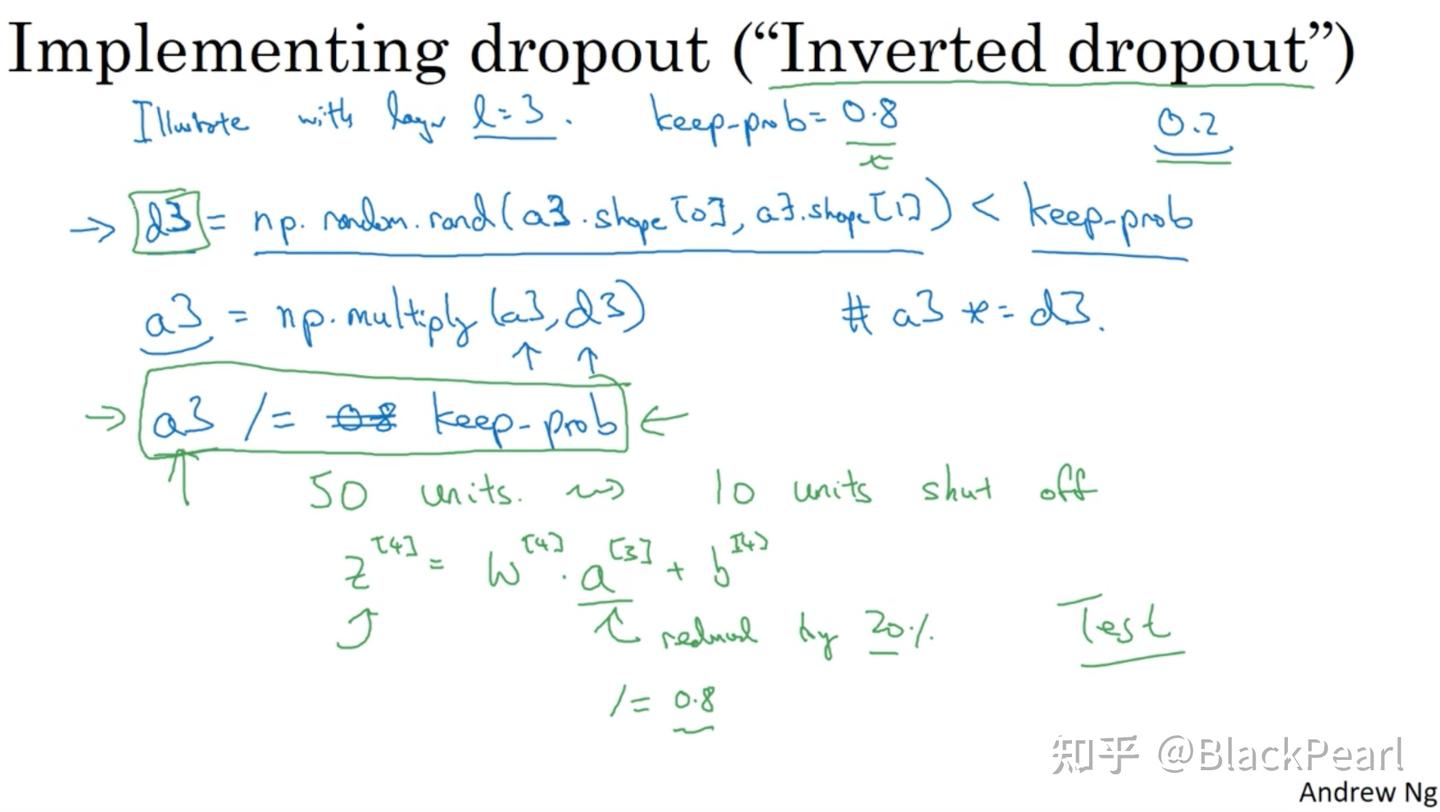 Implementing dropout (“Inverted dropout”)
Illustrate with layer l=3. keep-prob= 0.8 0.2
→ d3 = np.random.rand(a3.shape[0], a3.shape[1]) < keep-prob
a3 = np.multiply(a3, d3) # a3 *= d3.
→ a3 /= 0.8 keep-prob ←
50 units. ⇝ 10 units shut off
z^[4] = W^[4] . a^[3] + b^[4]
reduced by 20%. Test
/= 0.8
知乎 @BlackPearl
Andrew Ng